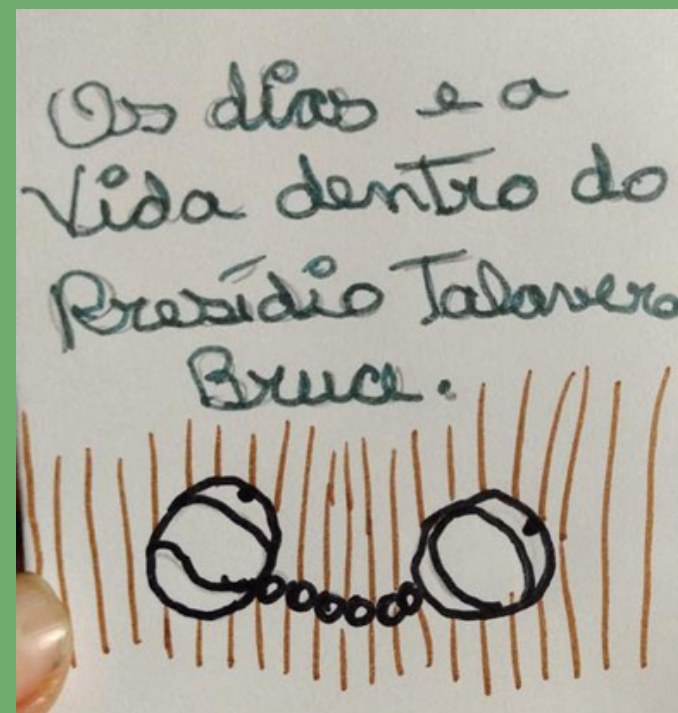 Os dias e a
Vida dentro do
Presídio Talavera
Bruce.